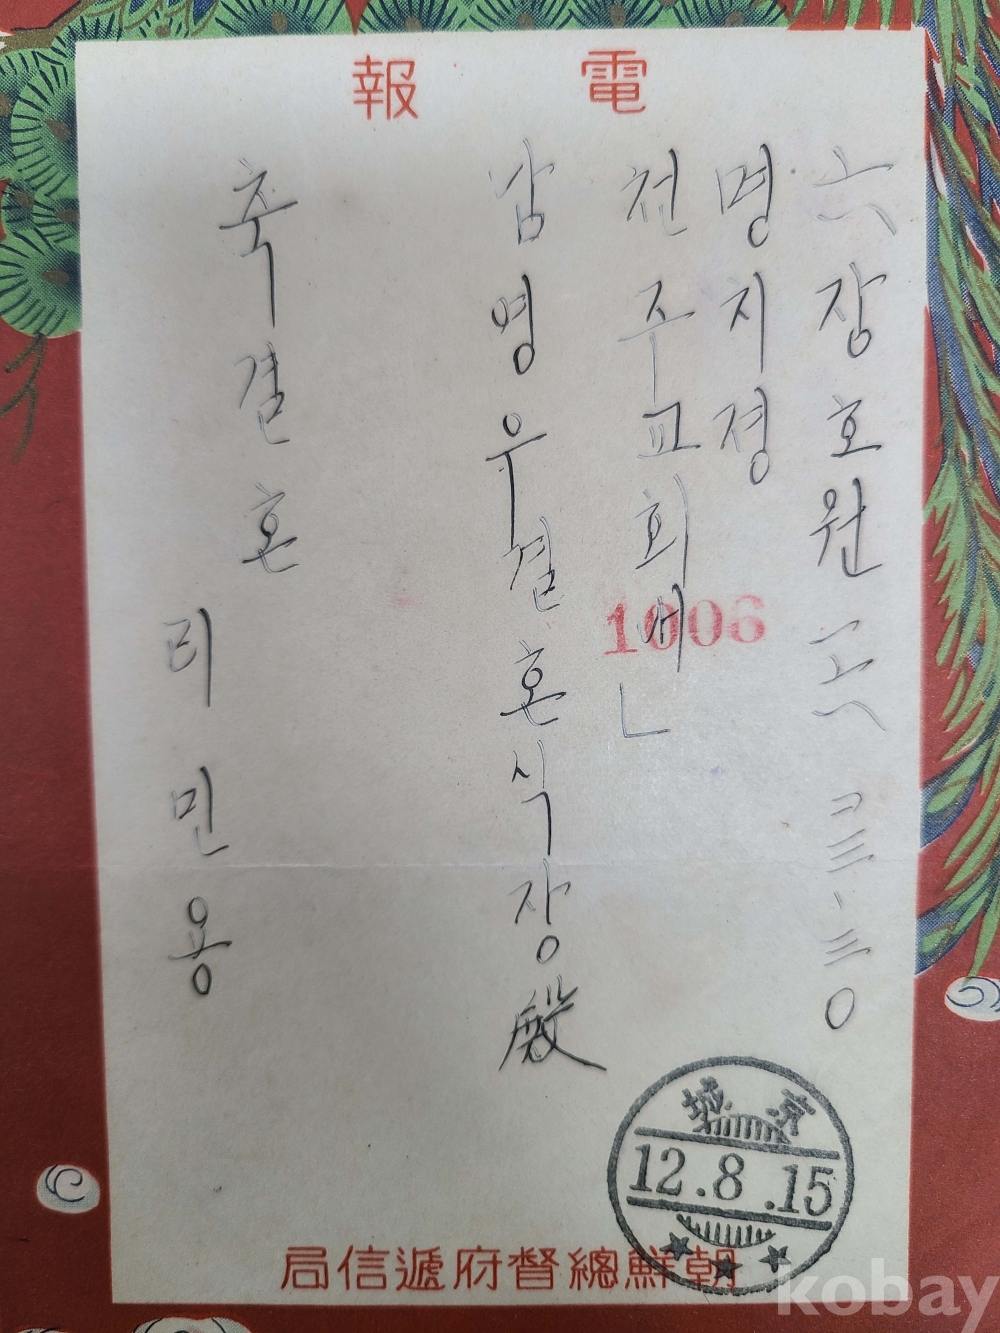 電報
六 장호원 一六 コ三、三〇
명지졍
천주교회
남영우결혼식장殿
축결혼
리민용
1006
京城
12.8.15
朝鮮總督府遞信局
kobay